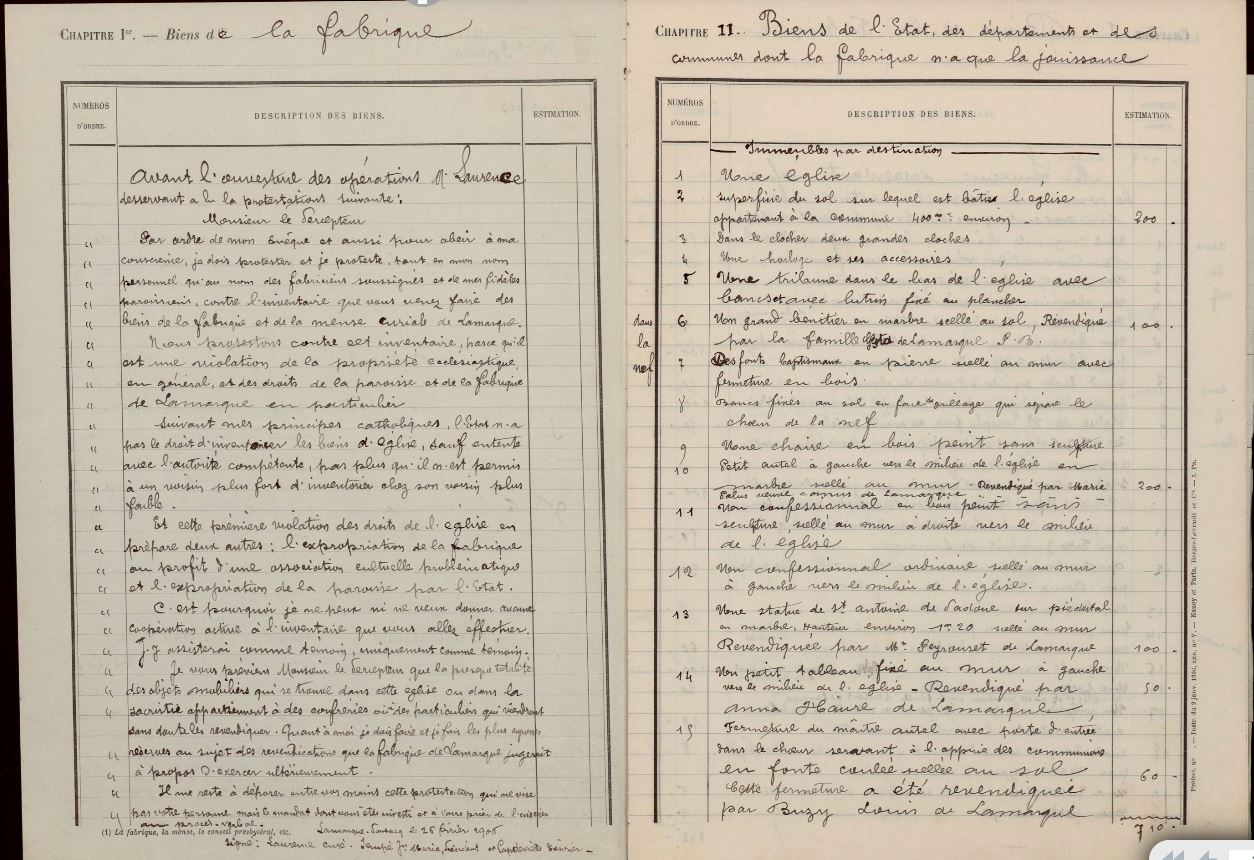 CHAPITRE Ier. — Biens de la fabrique
NUMÉROS D'ORDRE.
DESCRIPTION DES BIENS.
ESTIMATION.
Avant l'ouverture des opérations Mr Laurence
desservant a lu la protestations suivante :
Monsieur le Percepteur
Par ordre de mon Evêque et aussi pour obeir à ma
conscience, je dois protester et je proteste, tant en mon nom
personnel qu'au nom des fabriciens soussignés et de mes fidèles
paroissiens, contre l'inventaire que vous venez faire des
biens de la fabrique et de la mense curiale de Lamarque.
Nous protestons contre cet inventaire, parce qu'il
est une violation de la propriété ecclesiastique,
en général, et des droits de la paroisse et de la fabrique
de Lamarque en particulier
Suivant mes principes catholiques, l'Etat n'a
pas le droit d'inventorier les biens d'eglise, sauf entente
avec l'autorité compétente, pas plus qu'il n'est permis
à un voisin plus fort d'inventorier chez son voisin plus
faible.
Et cette première violation des droits de l'église en
prépare deux autres : l'expropriation de la fabrique
au profit d'une association cultuelle problématique
et l'expropriation de la paroisse par l'Etat.
C'est pourquoi je ne peux ni ne veux donner aucune
coopération active à l'inventaire que vous allez effectuer.
J'y assisterai comme temoin, uniquement comme temoin.
Je vous préviens Monsieur le Percepteur que la presque totalité
des objets mobiliers qui se trouve dans cette eglise ou dans la
sacristie appartiennent à des confreries ou des particuliers qui viendront
sans doute les revendiquer. Quant à moi je dois faire et je fais les plus expresses
réserves au sujet des revendications que la fabrique de Lamarque jugerait
à propos d'exercer ultérieurement.
Il me reste à déposer entre vos mains cette protestation qui ne vise
pas votre personne mais le mandat dont vous êtes investi et à vous prier de l'insérer
au procès-verbal.
(1) La fabrique, la mense, le conseil presbytéral, etc.
Lamarque-Pontacq le 26 février 1906
Signé : Laurence curé. Jean Marie, Président et Capdevielle Trésorier
CHAPITRE II. Biens de l'Etat, des départements et des
communes dont la fabrique n'a que la jouissance
NUMÉROS D'ORDRE.
DESCRIPTION DES BIENS.
ESTIMATION.
Immeubles par destination
1 Une eglise
2 superficie du sol sur lequel est bâtie l'eglise
appartenant à la commune 400 mq environ 200
3 Dans le clocher deux grandes cloches
4 Une horloge et ses accessoires
5 Une tribune dans le bas de l'eglise avec
bancs et avec lutrin fixé au plancher
dans la nef
6 Un grand benitier en marbre scellé au sol, Revendiqué 100
par la famille de Lamarque P. B.
7 Des fonts baptismaux en pierre scellé au mur avec
fermeture en bois.
8 Bancs fixés au sol en face du grillage qui sépare le
chœur de la nef
9 Une chaire en bois peint sans sculpture
10 Petit autel à gauche vers le milieu de l'église en
marbre scellé au mur. Revendiqué par Marie 200
Palus veuve Camus de Lamarque
11 Un confessionnal en bois peint sans
sculpture, scellé au mur à droite vers le milieu
de l'église
12 Un confessionnal ordinaire scellé au mur
à gauche vers le milieu de l'eglise.
13 Une statue de St antoine de Padoue sur piédestal
en marbre, Hauteur environ 1m20 scellé au mur
Revendiquée par Mr Peyrouset de Lamarque 100
14 Un petit tableau fixé au mur à gauche
vers le milieu de l'eglise - Revendiqué par 50
anna Haure de Lamarque
15 Fermeture du maître autel avec porte d'entrée
dans le chœur servant à l'appuie des communions
en fonte coulée scellée au sol 60
Cette fermeture a été revendiquée
par Buzy Louis de Lamarque
710